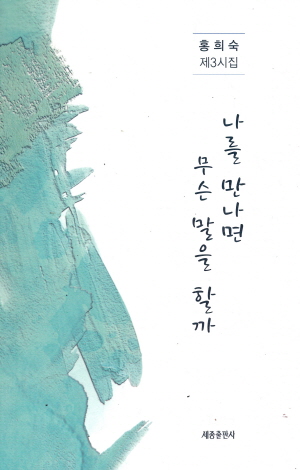 홍희숙
제3시집
나를 만나면
무슨 말을 할까
세종출판사